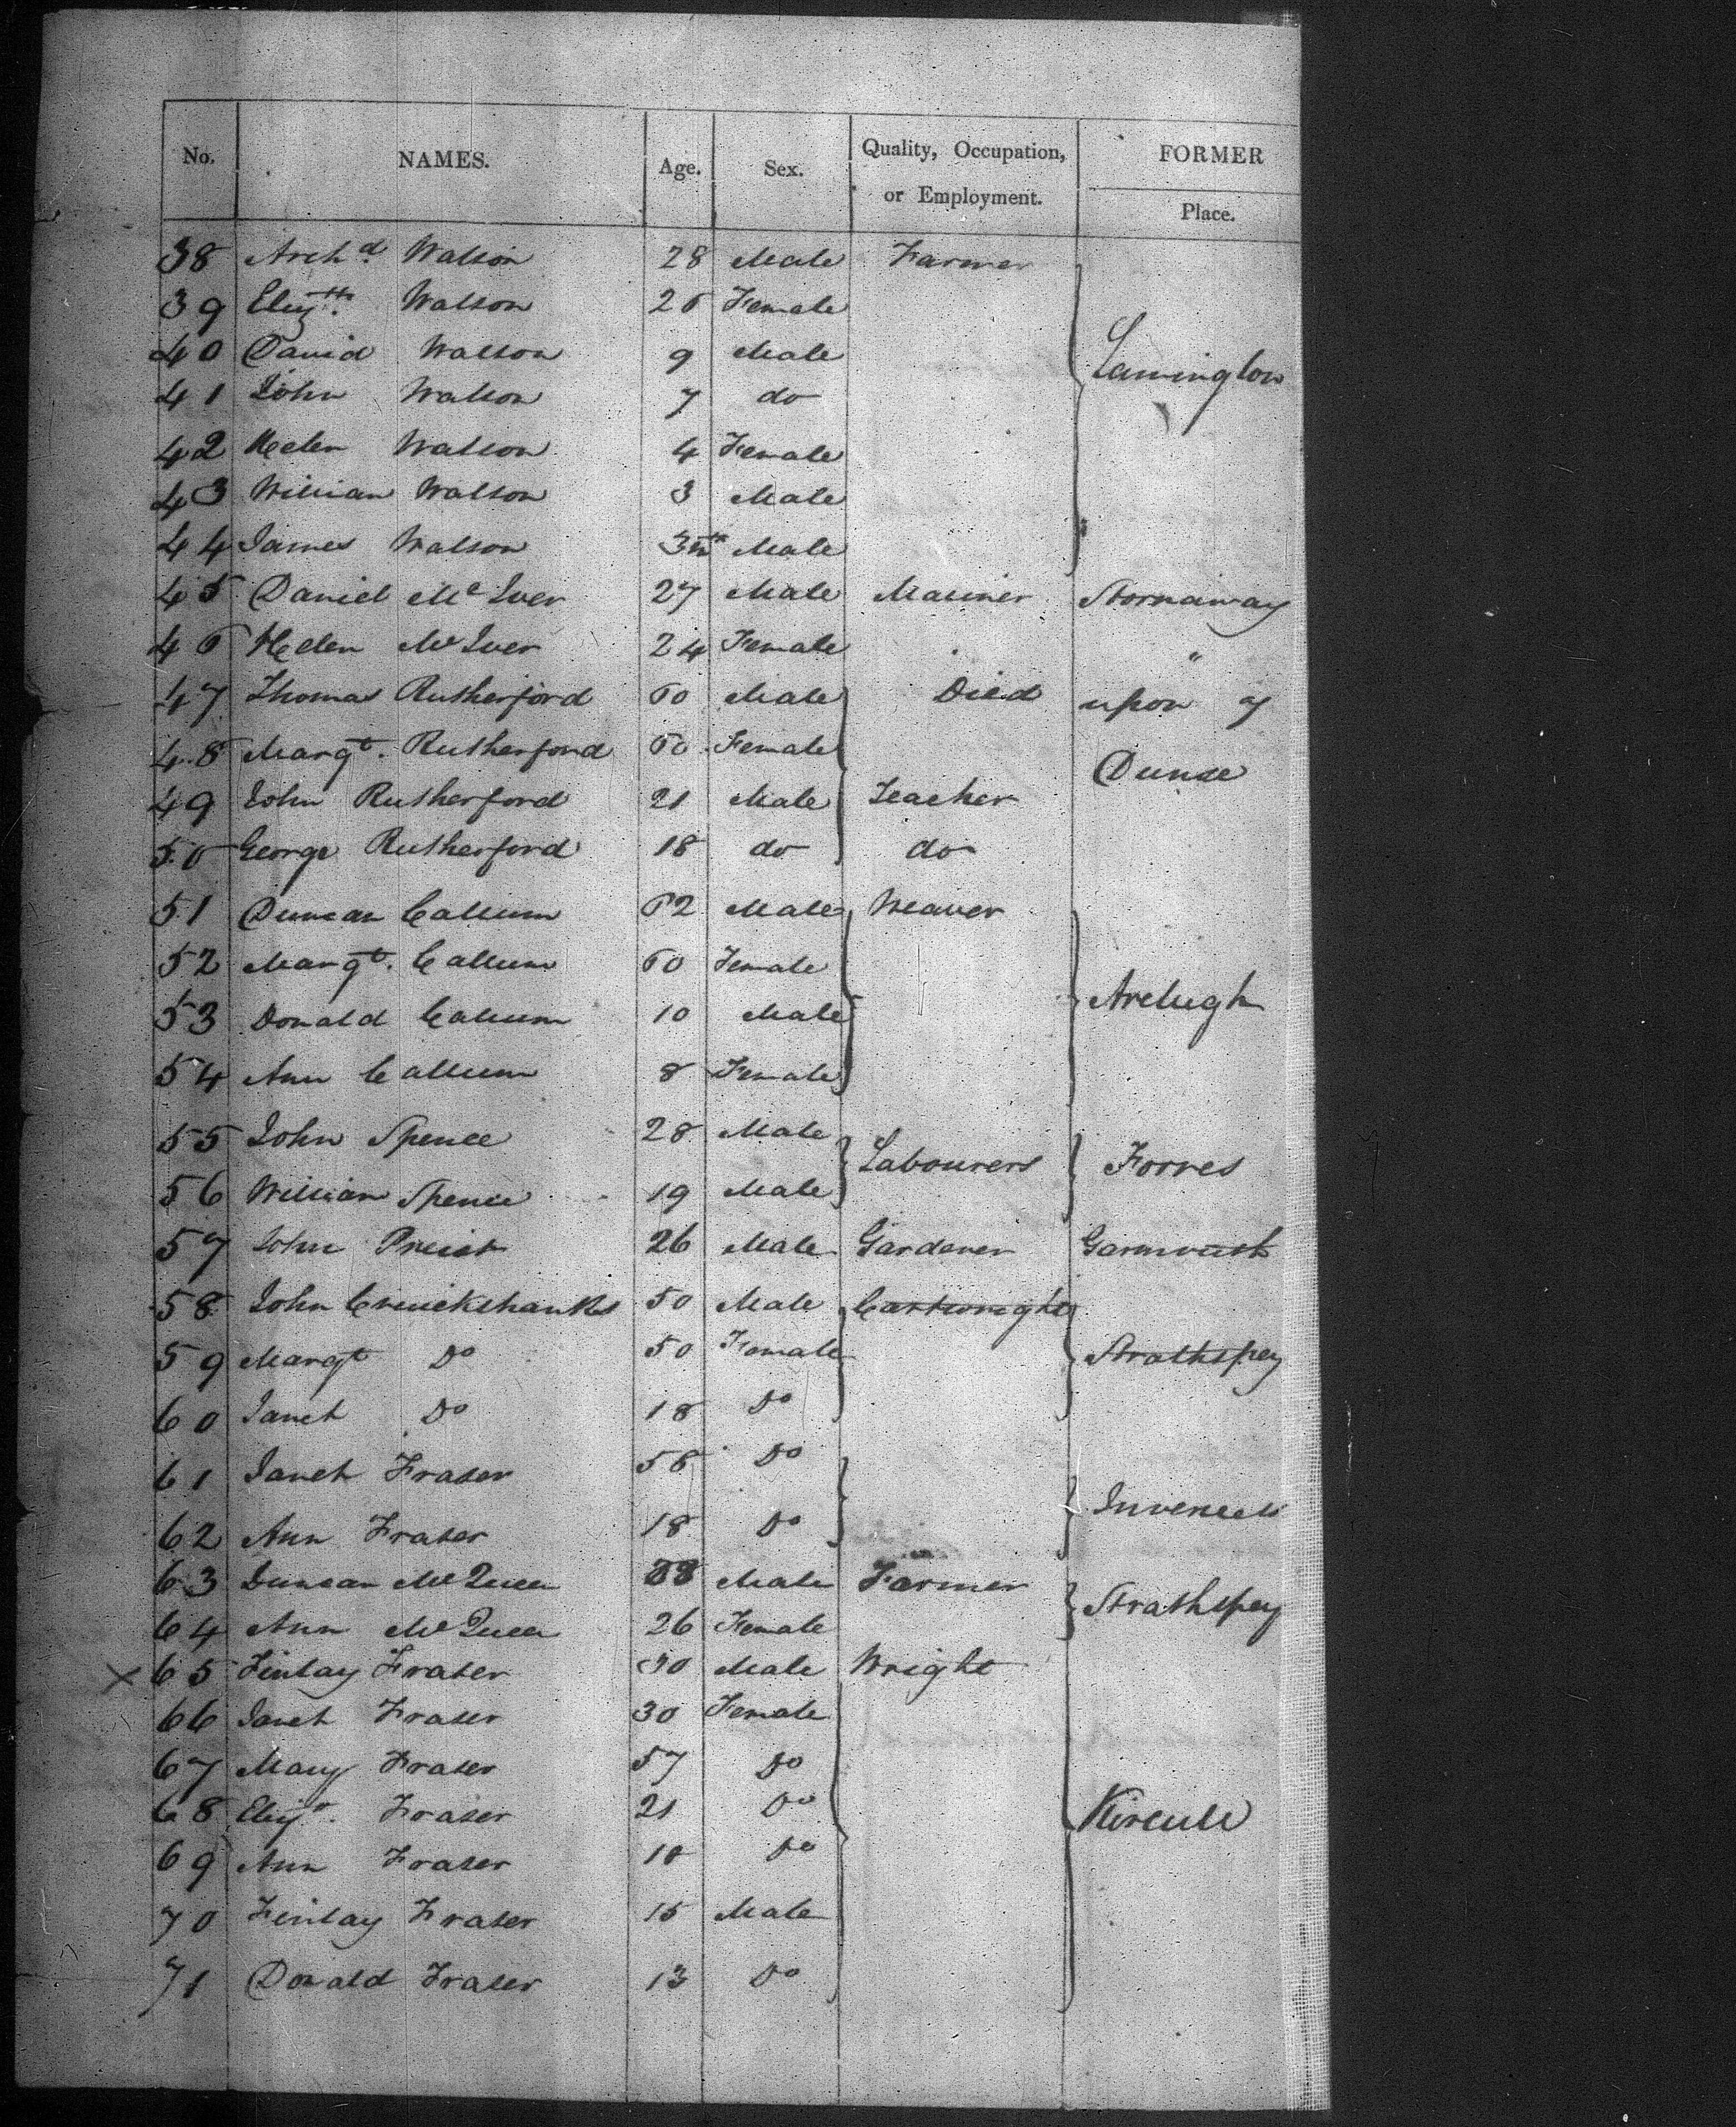 No. NAMES. Age. Sex. Quality, Occupation, or Employment. FORMER Place.
38 Archd. Watson 28 Male Farmer
39 Elizth. Watson 26 Female
40 David Watson 9 Male Lamington
41 John Watson 7 do
42 Helen Watson 4 Female
43 William Watson 3 Male
44 James Watson Male
45 Daniel McIver 27 Male Mariner Stornaway
46 Helen McIver 24 Female "
47 Thomas Rutherford 60 Male Died upon
48 Margt. Rutherford 60 Female Dunse
49 John Rutherford 21 Male Teacher
50 George Rutherford 18 do do
51 Duncan Callum 62 Male Weaver
52 Margt. Callum 60 Female
53 Donald Callum 10 Male
54 Ann Callum 8 Female
55 John Spence 28 Male Labourers Forres
56 William Spence 19 Male
57 John Preist 26 Male Gardener Garmouth
58 John Cruickshanks 50 Male Cartwright
59 Margt Do 50 Female Strathspey
60 Janet Do 18 Do
61 Janet Fraser 58 Do
62 Ann Fraser 18 Do Inverness
63 Duncan McQueen Male Farmer Strathspey
64 Ann McQueen 26 Female
x 65 Finlay Fraser Male Wright
66 Janet Fraser 30 Female
67 Mary Fraser 57 Do
68 Elizt. Fraser 21 Do
69 Ann Fraser 18 Do
70 Finlay Fraser 15 Male
71 Donald Fraser 13 Do